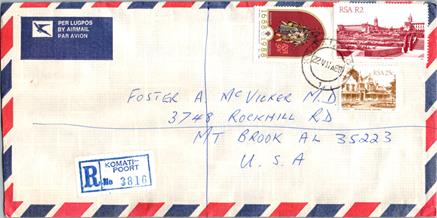 PER LUGPOS
BY AIRMAIL
PAR AVION
1688-1988
RSA R2
RSA 25c
FOSTER A. McVICKER M.D
3748 ROCKHILL RD
MT BROOK AL 35223
U. S. A
KOMATI-
POORT
R No 3816